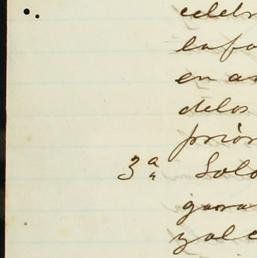 celebr
la fa
en a
de los
prior
3ª Solo
gara
y al c